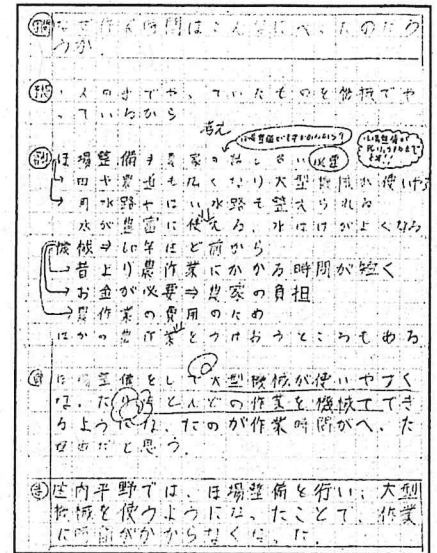 問 なぜ作業時間はこんなにへったのだろ
うか。
予 人の手でや っていたものを機械でや
っているから
考え
ほ場整備 農家の
水田
→田や農地も広くなり大型機械が使いやす
→用水路やはい水路も整えられる
水が豊富に使える、水はけがよくなる
機械⇒50年ほど前から
→昔より農作業にかかる時間が短く
→お金が必要⇒農家の負担
→農作業の費用のため
ほかの農作業をうけおうところもある
自 ほ場整備をして大型機械が使いやすく
なったり、ほとんどの作業を機械ででき
るようになったのが作業時間がへった
理由だと思う。
ま 庄内平野では、ほ場整備を行い、大型
機械を使うようになったことで、作業
に時間がかからなくなった。